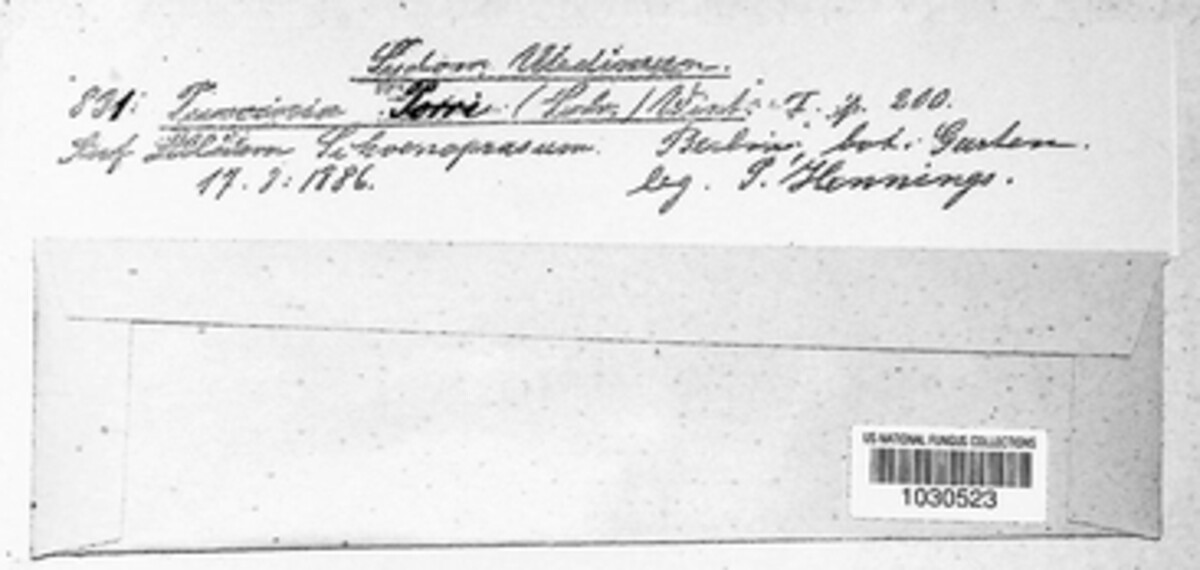 Sydow, Uredineen.
831. Puccinia Porri (Sow.) Wint. I. p. 200.
Auf Allium Schoenoprasum. Berlin, bot. Garten.
17. 9. 1886. leg. P. Hennings.
US NATIONAL FUNGUS COLLECTIONS
1030523